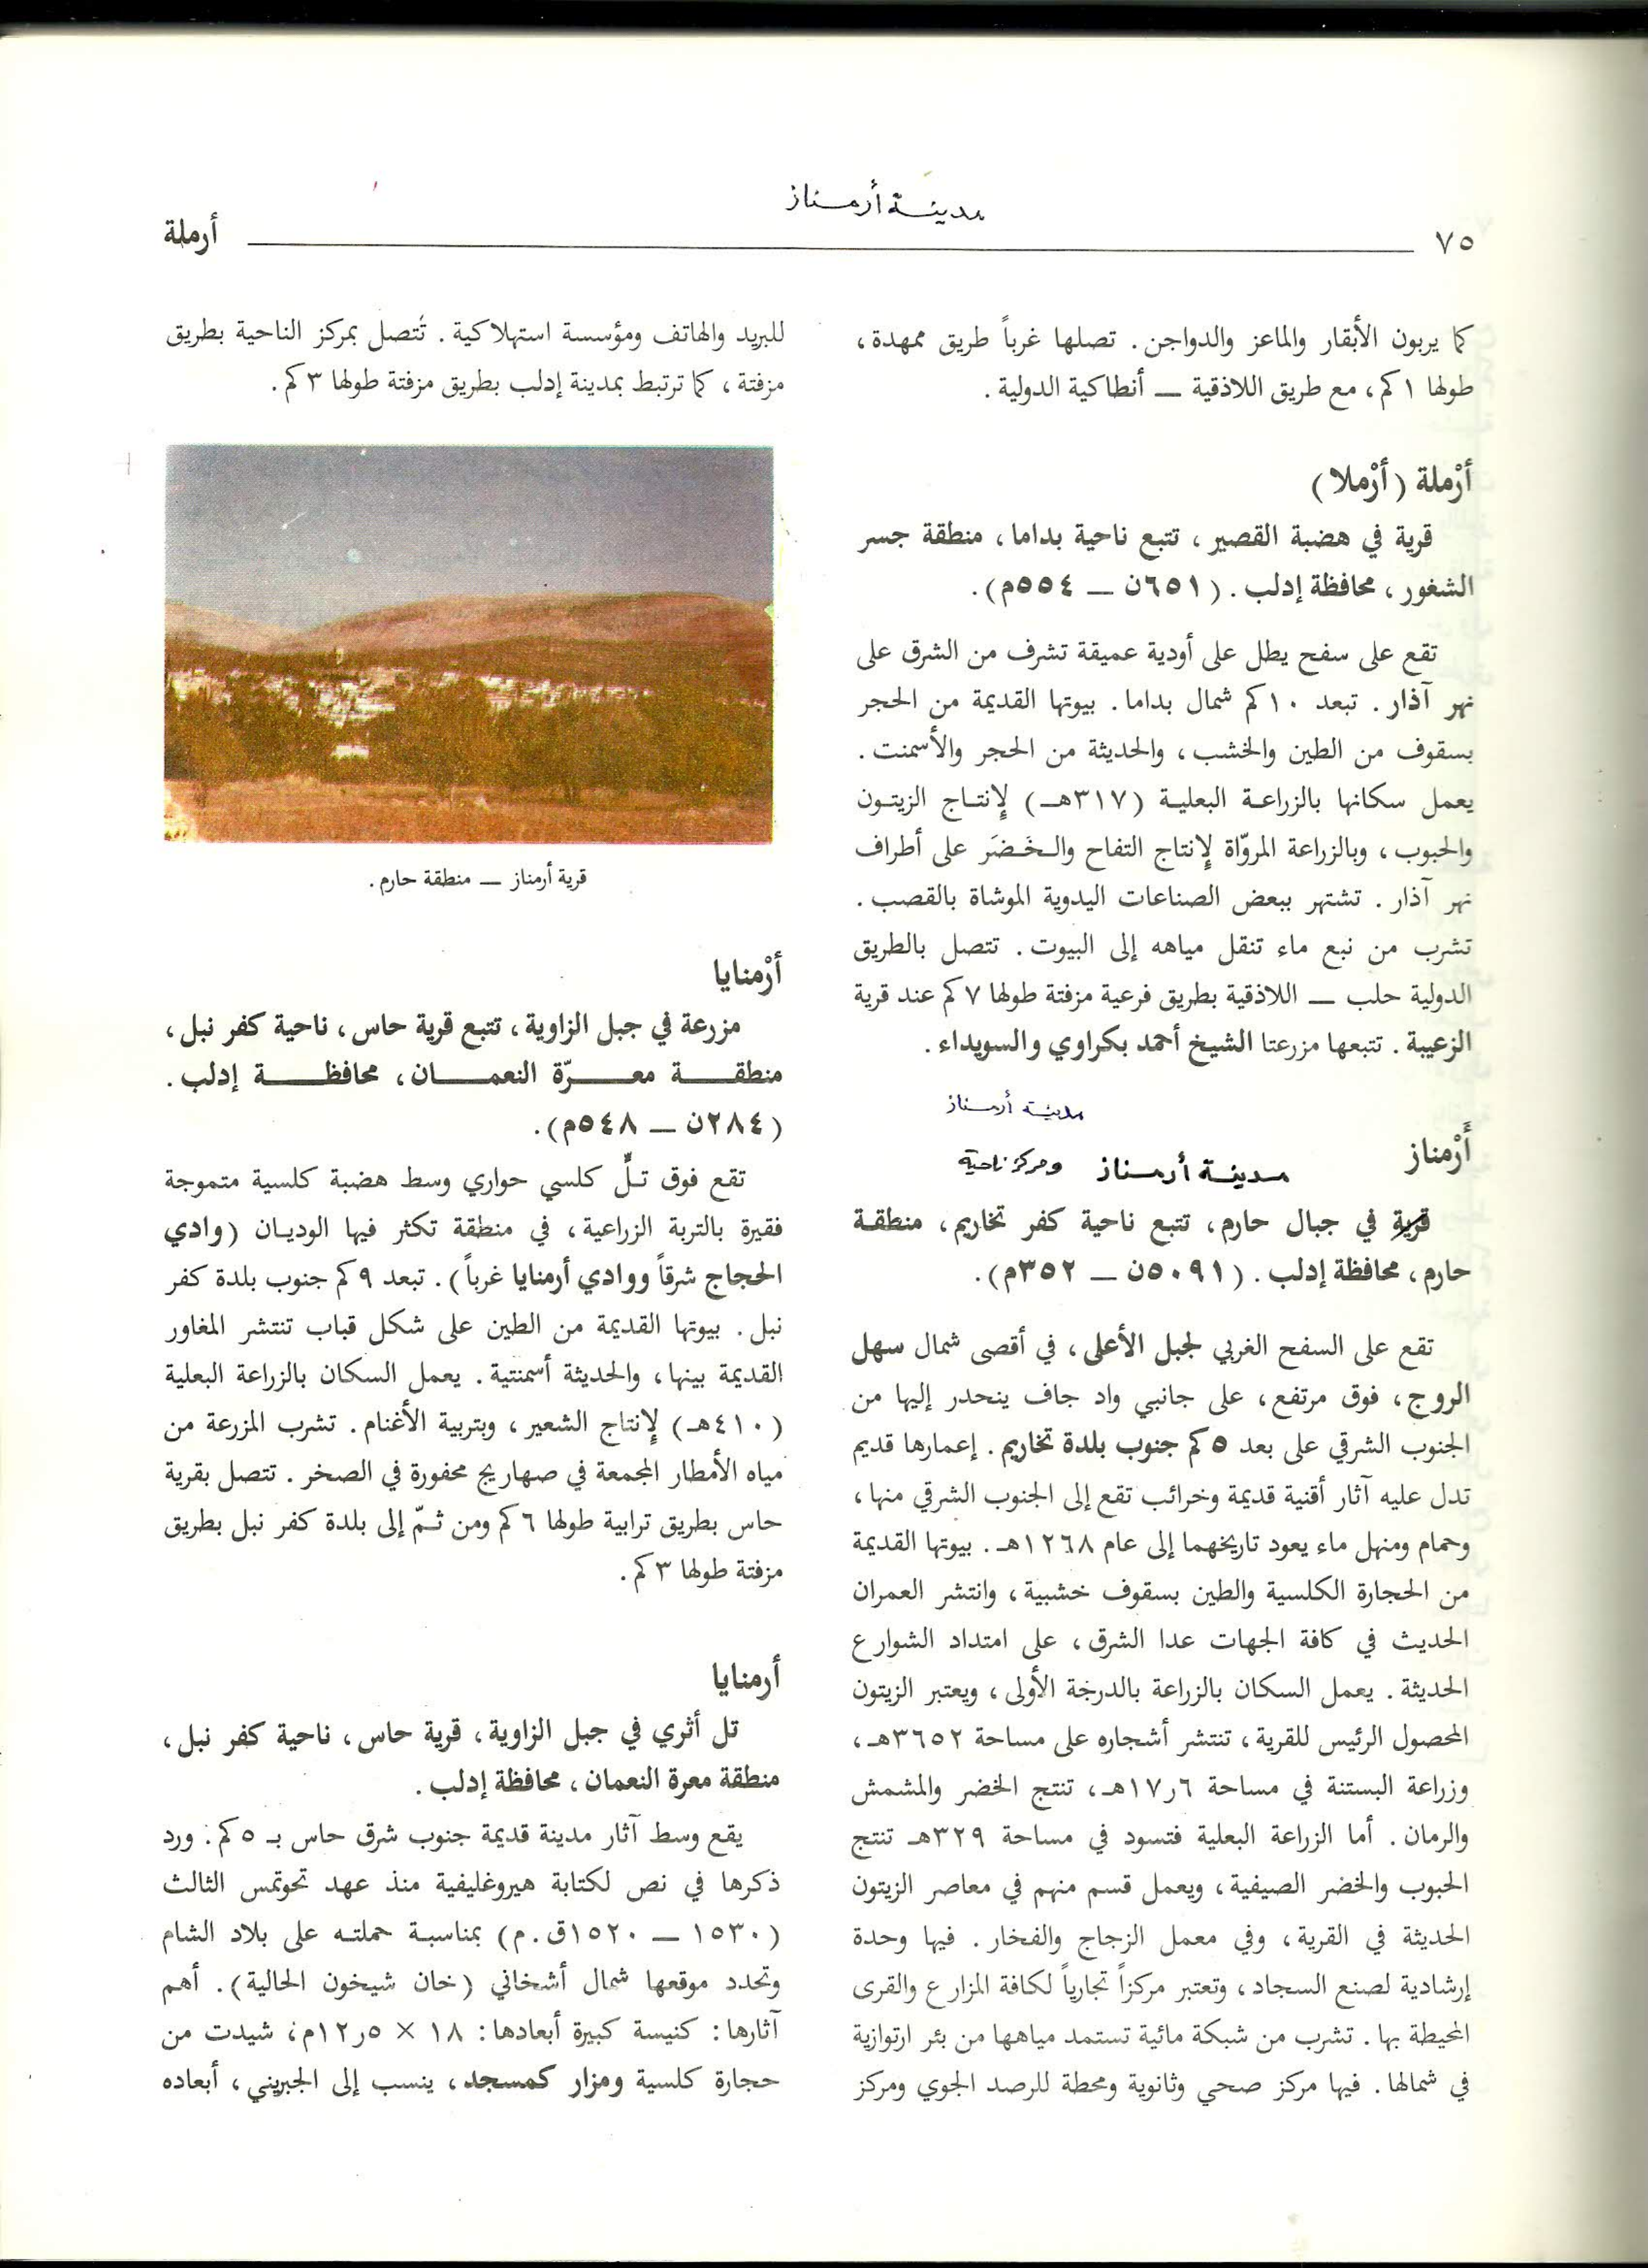 مدينة أرمناز
٧٥
أرملة
كما يربون الأبقار والماعز والدواجن. تصلها غرباً طريق ممهدة،
طولها ١ كم، مع طريق اللاذقية — أنطاكية الدولية.
أرْملة (أرْملا)
قرية في هضبة القصير، تتبع ناحية بداما، منطقة جسر
الشغور، محافظة إدلب. (٦٥١ن — ٥٥٤م).
تقع على سفح يطل على أودية عميقة تشرف من الشرق على
نهر آذار. تبعد ١٠ كم شمال بداما. بيوتها القديمة من الحجر
بسقوف من الطين والخشب، والحديثة من الحجر والأسمنت.
يعمل سكانها بالزراعة البعلية (٣١٧هـ) لإنتاج الزيتون
والحبوب، وبالزراعة المروّاة لإنتاج التفاح والخَضَر على أطراف
نهر آذار. تشتهر ببعض الصناعات اليدوية الموشاة بالقصب.
تشرب من نبع ماء تنقل مياهه إلى البيوت. تتصل بالطريق
الدولية حلب — اللاذقية بطريق فرعية مزفتة طولها ٧ كم عند قرية
الزعيبة. تتبعها مزرعتا الشيخ أحمد بكراوي والسويداء.
مدينة أرمناز
أَرْمناز
مدينة أرمناز ومركز ناحية
قرية في جبال حارم، تتبع ناحية كفر تخاريم، منطقة
حارم، محافظة إدلب. (٥٠٩١ن — ٣٥٢م).
تقع على السفح الغربي لجبل الأعلى، في أقصى شمال سهل
الروج، فوق مرتفع، على جانبي واد جاف ينحدر إليها من
الجنوب الشرقي على بعد ٥ كم جنوب بلدة تخاريم. إعمارها قديم
تدل عليه آثار أقنية قديمة وخرائب تقع إلى الجنوب الشرقي منها،
وحمام ومنهل ماء يعود تاريخهما إلى عام ١٢٦٨هـ. بيوتها القديمة
من الحجارة الكلسية والطين بسقوف خشبية، وانتشر العمران
الحديث في كافة الجهات عدا الشرق، على امتداد الشوارع
الحديثة. يعمل السكان بالزراعة بالدرجة الأولى، ويعتبر الزيتون
المحصول الرئيس للقرية، تنتشر أشجاره على مساحة ٣٦٥٢هـ،
وزراعة البستنة في مساحة ١٧٫٦هـ، تنتج الخضر والمشمش
والرمان. أما الزراعة البعلية فتسود في مساحة ٣٢٩هـ تنتج
الحبوب والخضر الصيفية، ويعمل قسم منهم في معاصر الزيتون
الحديثة في القرية، وفي معمل الزجاج والفخار. فيها وحدة
إرشادية لصنع السجاد، وتعتبر مركزاً تجارياً لكافة المزارع والقرى
المحيطة بها. تشرب من شبكة مائية تستمد مياهها من بئر ارتوازية
في شمالها. فيها مركز صحي وثانوية ومحطة للرصد الجوي ومركز
للبريد والهاتف ومؤسسة استهلاكية. تتصل بمركز الناحية بطريق
مزفتة، كما ترتبط بمدينة إدلب بطريق مزفتة طولها ٣ كم.
قرية أرمناز — منطقة حارم.
أرْمنايا
مزرعة في جبل الزاوية، تتبع قرية حاس، ناحية كفر نبل،
منطقة معرّة النعمان، محافظة إدلب.
(٢٨٤ن — ٥٤٨م).
تقع فوق تلٍّ كلسي حواري وسط هضبة كلسية متموجة
فقيرة بالتربة الزراعية، في منطقة تكثر فيها الوديان (وادي
الحجاج شرقاً ووادي أرمنايا غرباً). تبعد ٩ كم جنوب بلدة كفر
نبل. بيوتها القديمة من الطين على شكل قباب تنتشر المغاور
القديمة بينها، والحديثة أسمنتية. يعمل السكان بالزراعة البعلية
(٤١٠هـ) لإنتاج الشعير، وبتربية الأغنام. تشرب المزرعة من
مياه الأمطار المجمعة في صهاريج محفورة في الصخر. تتصل بقرية
حاس بطريق ترابية طولها ٦ كم ومن ثمّ إلى بلدة كفر نبل بطريق
مزفتة طولها ٣ كم.
أرمنايا
تل أثري في جبل الزاوية، قرية حاس، ناحية كفر نبل،
منطقة معرة النعمان، محافظة إدلب.
يقع وسط آثار مدينة قديمة جنوب شرق حاس بـ ٥ كم. ورد
ذكرها في نص لكتابة هيروغليفية منذ عهد تحوتمس الثالث
(١٥٣٠ — ١٥٢٠ق.م) بمناسبة حملته على بلاد الشام
وتحدد موقعها شمال أشخاني (خان شيخون الحالية). أهم
آثارها: كنيسة كبيرة أبعادها: ١٨ × ١٢٫٥م، شيدت من
حجارة كلسية ومزار كمسجد، ينسب إلى الجبريني، أبعاده